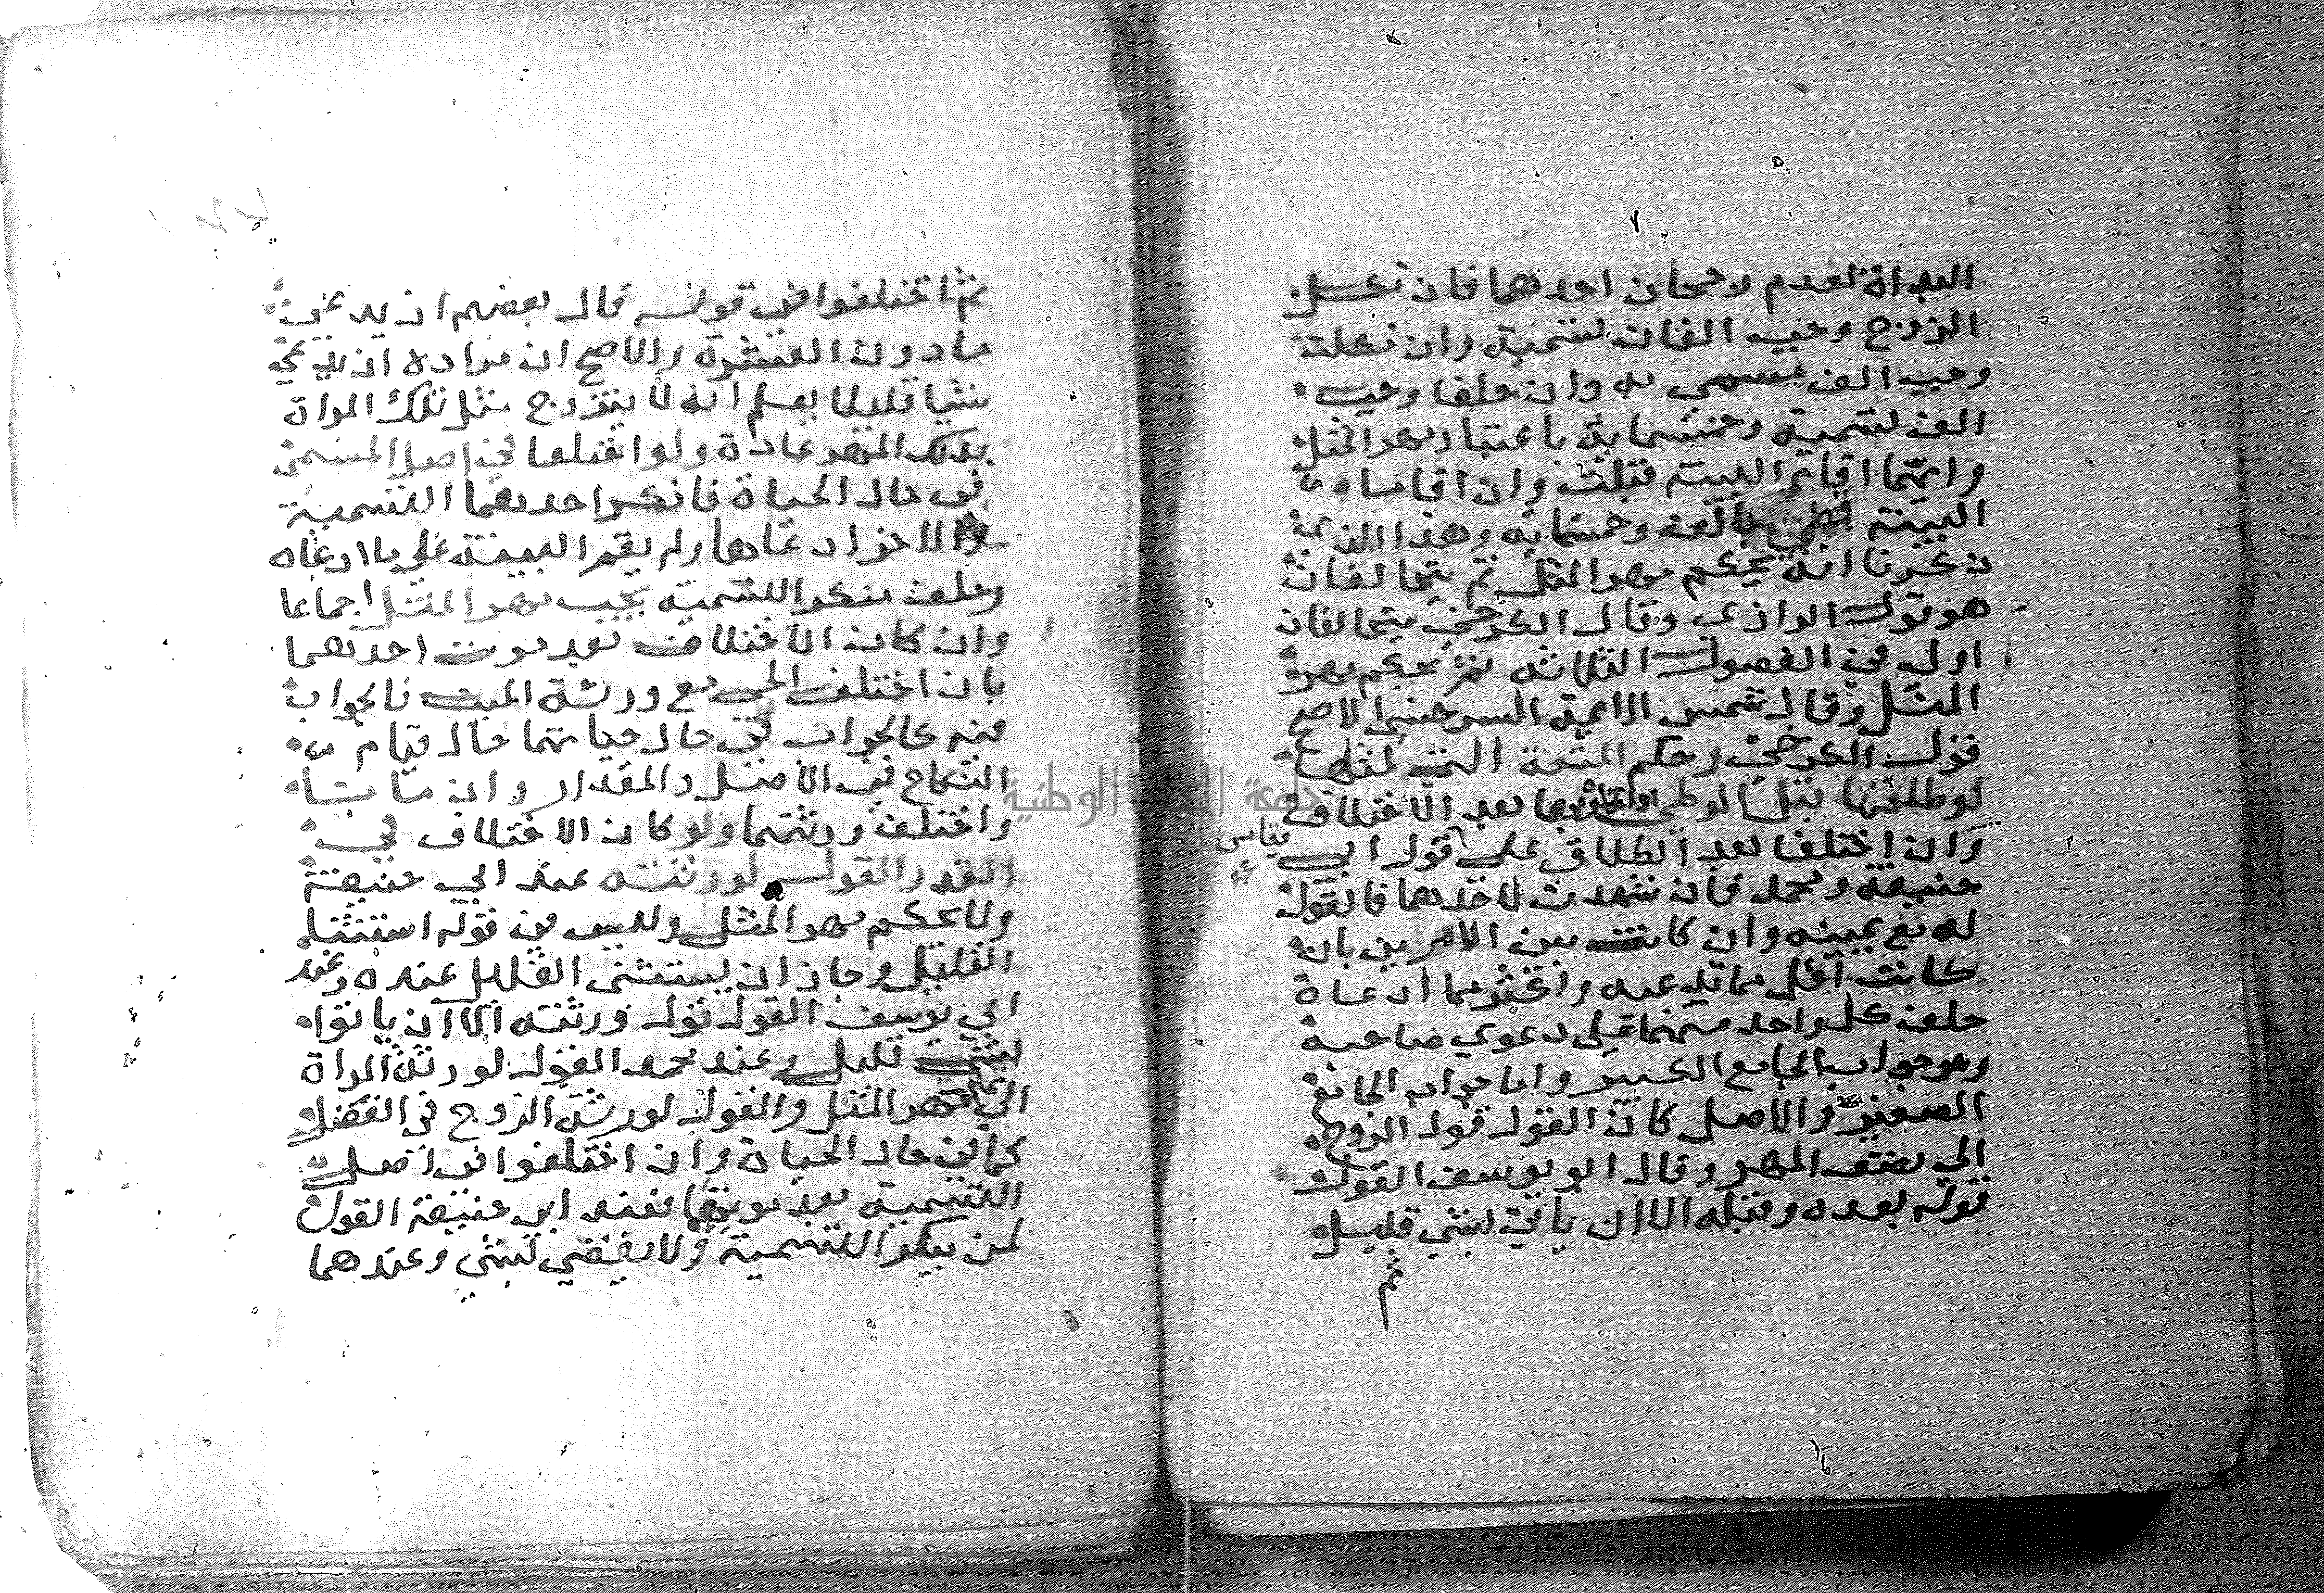 البداة لعدم لرجحان احدهما فان نكل
الزوج وجب الفان تسمية وان نكلت
وجب الف مسمى له وان حلفا وجب
الف تسمية وخمسماية باعتبار مهر المثل
وايهما اقام البينة قبلت وان اقاما
البينة قضي بالف وخمسماية وهذا الذي
ذكرنا انه يحكم مهر المثل ثم يتحالفان
هو قول الرازي وقال الكرخي يتحالفان
اولا في الفصول الثلاثة ثم يحكم مهر
المثل وقال شمس الايمة السرخسي الاصح
قول الكرخي وحكم المتعة التي لمثلها
لو طلقها قبل الوطي بها بعد الاختلاف
وان اختلفا بعد الطلاق على قول ابي
قياس
حنيفة ومحمد فان شهدت لاحدهما فالقول
له مع يمينه وان كانت بين الامرين بان
كانت اقل مما تدعيه واكثر مما ادعاه
حلف كل واحد منهما على دعوي صاحبه
وهو جواب الجامع الكبير واما جواب الجامع
الصغير والاصل كان القول قول الزوج
الي نصف المهر وقال ابو يوسف القول
قوله بعده وقبله الا ان ياتي بشي قليل
ثم
ثم اختلفوا في قوله قال بعضهم ان يدعي
مادون العشرة والاصح ان مراده ان يدعي
شيا قليلا يعلم انه لا يتزوج مثل تلك المراة
بذلك المهر عادة ولو اختلفا في اصل المسمى
في حال الحياة فانكر احدهما التسمية
والاخر ادعاها ولم يقم البينة على ما ادعاه
وحلف منكر التسمية يجب مهر المثل اجماعا
وان كان الاختلاف بعد موت احدهما
بان اختلف الحي مع ورثة الميت فالجواب
فيه كالجواب في حال حياتهما حال قيام
النكاح في الاصل والمقدار وان ماتا
واختلف ورثتهما ولو كان الاختلاف في
القدر القول لورثته عند ابي حنيفة
ولا يحكم مهر المثل وليس في قوله استثنا
القليل وجاز ان يستثنى القليل عنده وعند
ابي يوسف القول قول ورثته الا ان ياتوا
بشي قليل وعند محمد القول لورثة المراة
الي تمام مهر المثل والقول لورثة الزوج في الفضل
كما في حال الحياة وان اختلفوا في اصل
التسمية بعد موتهما فعند ابي حنيفة القول
لمن ينكر التسمية ولا يقضي بشي وعندهما
جامعة النجاح الوطنية